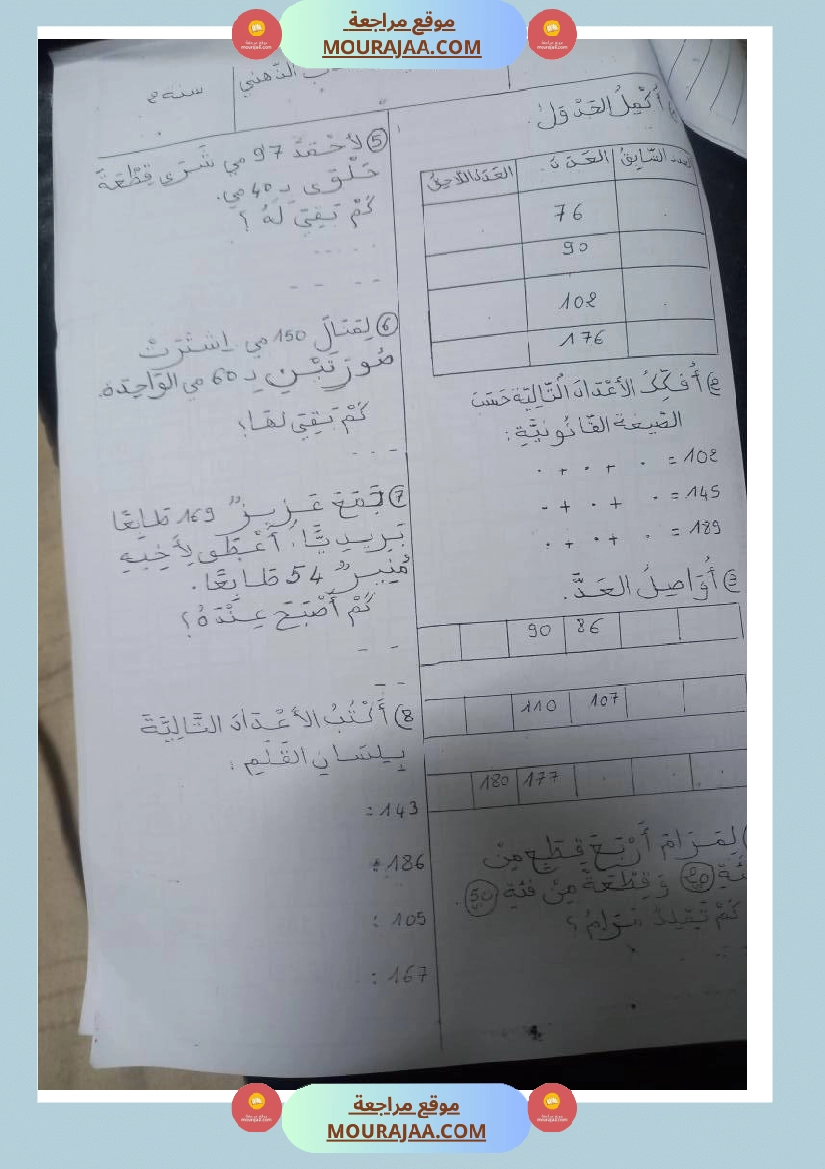 موقع مراجعة
MOURAJAA.COM
الذهني
سنة 2
أُكْمِلُ الجَدْوَلَ.
العدد السّابق العَدَدُ العَدَدُ اللاَّحِقُ
76
90
102
176
2) أُفَكِّكُ الأَعْدَادَ التَّالِيَةَ حَسَبَ
الصّيغة القَانُونِيَّةِ:
102 = . + . + .
145 = . + . + .
189 = . + . + .
3) أُوَاصِلُ العَدَّ.
86 90
107 110
177 180
لِمَرَامَ أَرْبَعَ قِطَعٍ مِنْ
فئة 20 وَقِطْعَةً مِنْ فئة 50.
كَمْ تَمْلِكُ مَرَامُ؟
5 لأحْمَدَ 97 مي شَرَى قِطْعَةَ
حَلْوَى بـ 40 مي.
كَمْ بَقِيَ لَهُ؟
6 لِمَنَالَ 150 مي. اِشْتَرَتْ
صُورَتَيْنِ بـ 60 مي الوَاحِدَة.
كَمْ بَقِيَ لهَا؟
7 جَمَعَ عَزِيزٌ 169 طَابِعًا
بَرِيدِيًّا. أَعْطَى لِأَخِيهِ
مُنِيرٌ 54 طَابِعًا.
كَمْ أَصْبَحَ عِنْدَهُ؟
8) أَكْتُبُ الأَعْدَادَ التَّالِيَةَ
بِلِسَانِ القَلَمِ:
143 :
186 :
105 :
167 :
موقع مراجعة
MOURAJAA.COM